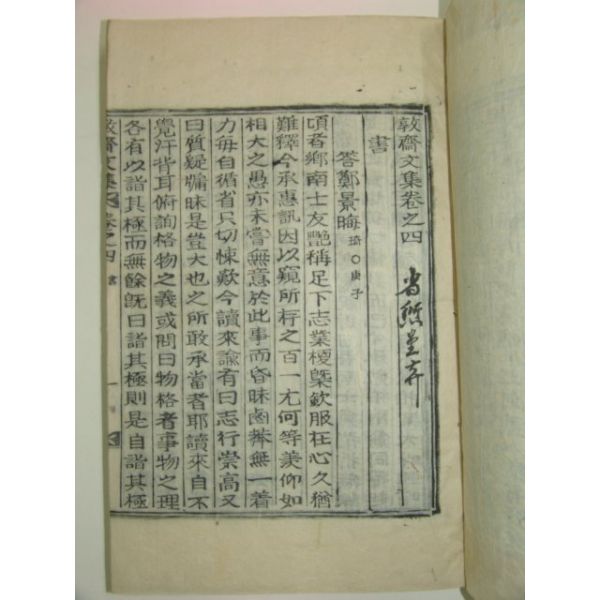 敦齋文集卷之四
書
答鄭景晦 琦○庚子
頃者鄉南士友艶稱足下志業梗槩欽服在心久猶
難釋今承惠訊因以窺所存之百一尤何等羡仰如
相大之愚亦未嘗無意於此事而昏昧鹵莽無一着
力每自循省只切悚歎今讀來諭有曰志行崇高又
曰質疑牖昧是豈大也之所敢承當者耶讀來自不
覺汗背耳俯詢格物之義或問曰物格者事物之理
各有以詣其極而無餘旣曰詣其極則是自詣其極
敦齋文集 卷之四 書 一